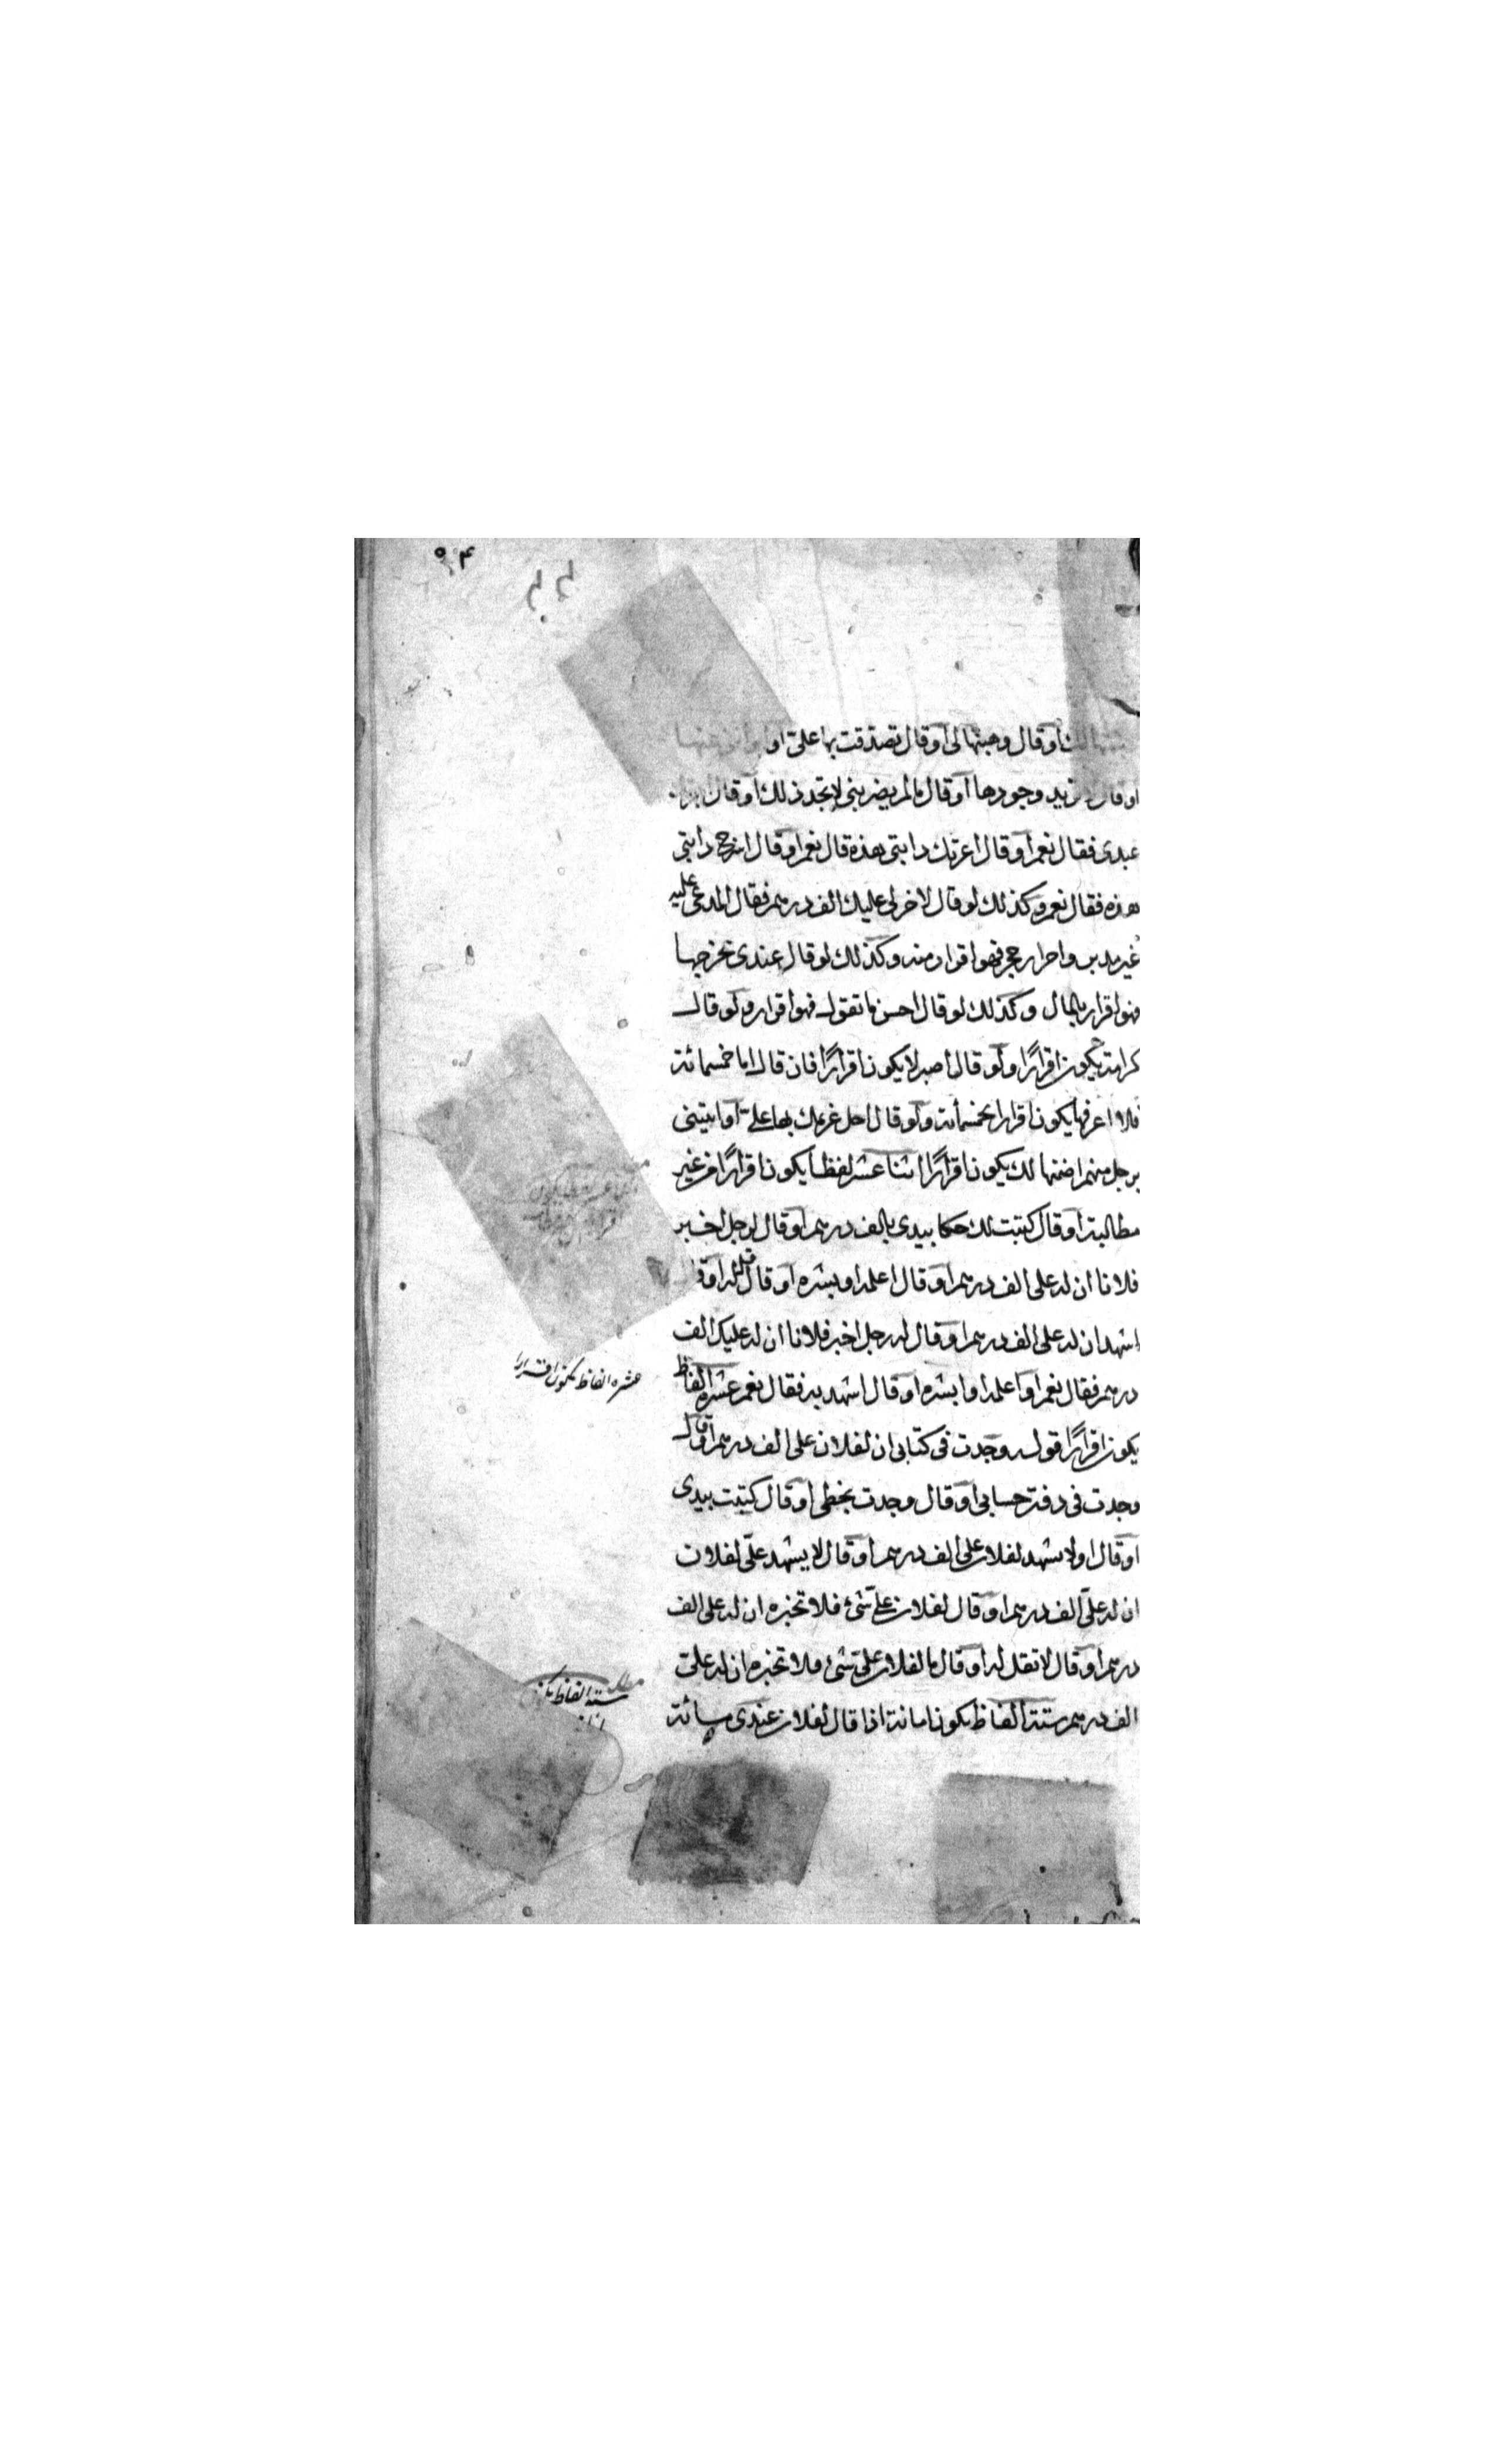 لك أو قال وهبتها لى أو قال تصدقت بها على او
او قال لا نريد وجودها أو قال مالم يضربنى لا تجدد ذلك أو قال
عبدى فقال نعم أو قال اعرتك دابتى هذه قال نعم أو قال اسرج دابتى
هذه فقال نعم وكذلك لو قال لاخر لى عليك الف درهم فقال المدعى عليه
غير مد واحرار فهو اقرار منه وكذلك لو قال عندى تخرجها
فهو اقرار بالمال وكذلك لو قال احسن ما تقول فهو اقرار ولو قال
كرامة يكون اقرارًا ولو قال اصبر لا يكون اقرارًا فان قال اما خمسمائة
فلا اعرفها يكون اقرارا بخمسمأئة ولو قال احل غريمك بها على أو ايتينى
برجل منهم اضمنها لك يكون اقرارًا اثنا عشر لفظا يكون اقرارًا من غير
مطالبة أو قال كتبت لك صكا بيدى بالف درهم أو قال لرجل اخبر
فلانا ان له على الف درهم أو قال اعلمه او بشره أو قال قل له او
اشهد ان له على الف درهم أو قال له رجل اخبر فلانا ان له عليك الف
درهم فقال نعم او اعلمه او ابشره او قال اشهد به فقال نعم عشرة الفاظ
يكون اقرارًا قوله وجدت فى كتابى ان لفلان على الف درهم أو قال
وجدت فى دفتر حسابى أو قال وجدت بخطى او قال كتبت بيدى
او قال اولا يشهد لفلان على الف درهم او قال لا يشهد على لفلان
ان له على الف درهم او قال لفلان على شئ فلا تخبره ان له على الف
درهم او قال لا تقل له او قال ما لفلان على شئ فلا تخبره ان له على
الف درهم ستة الفاظ يكون امانة اذا قال لفلان عندى مائة
عشره الفاظ يكون اقرارا
مطلب
ستة الفاظ